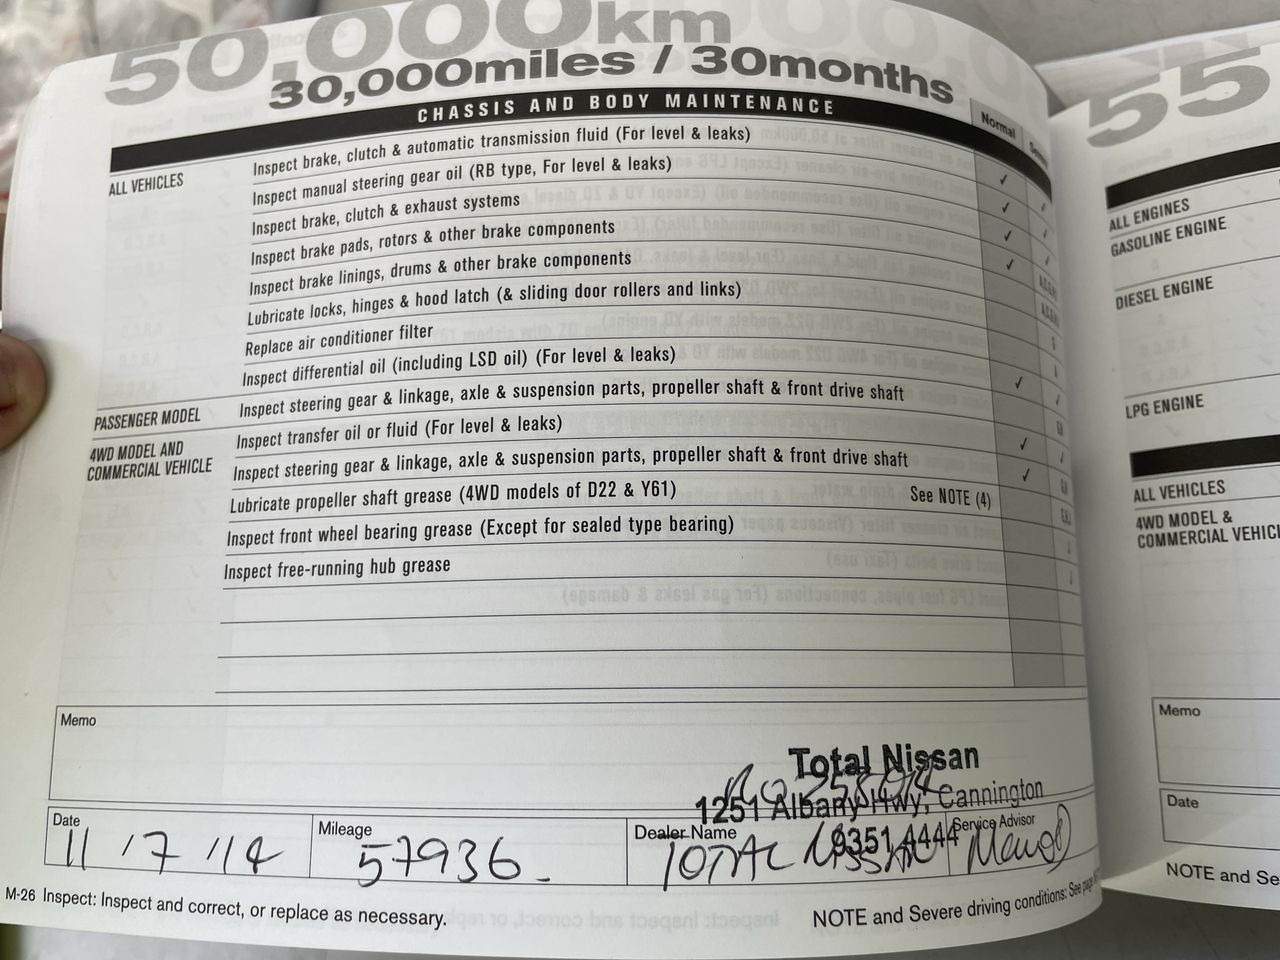 50,000km
30,000miles / 30months
CHASSIS AND BODY MAINTENANCE
Normal
ALL VEHICLES
Inspect brake, clutch & automatic transmission fluid (For level & leaks) ✓
Inspect manual steering gear oil (RB type, For level & leaks) ✓
Inspect brake, clutch & exhaust systems ✓
Inspect brake pads, rotors & other brake components ✓
Inspect brake linings, drums & other brake components
Lubricate locks, hinges & hood latch (& sliding door rollers and links)
Replace air conditioner filter
Inspect differential oil (including LSD oil) (For level & leaks) ✓
PASSENGER MODEL
Inspect steering gear & linkage, axle & suspension parts, propeller shaft & front drive shaft
4WD MODEL AND
COMMERCIAL VEHICLE
Inspect transfer oil or fluid (For level & leaks) ✓
Inspect steering gear & linkage, axle & suspension parts, propeller shaft & front drive shaft ✓
Lubricate propeller shaft grease (4WD models of D22 & Y61) See NOTE (4)
Inspect front wheel bearing grease (Except for sealed type bearing)
Inspect free-running hub grease
Memo
Total Nissan
1251 Albany Hwy, Cannington
9351 4444
Date
11 / 7 / 14
Mileage
57936
Dealer Name
TOTAL NISSAN
Service Advisor
M-26 Inspect: Inspect and correct, or replace as necessary.
NOTE and Severe driving conditions: See page
55
ALL ENGINES
GASOLINE ENGINE
DIESEL ENGINE
LPG ENGINE
ALL VEHICLES
4WD MODEL &
COMMERCIAL VEHICL
Memo
Date
NOTE and Se